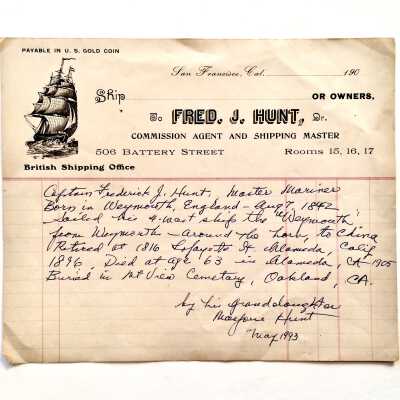 PAYABLE IN U. S. GOLD COIN
San Francisco, Cal. 190
Ship OR OWNERS,
To FRED. J. HUNT, Dr.
COMMISSION AGENT AND SHIPPING MASTER
506 BATTERY STREET Rooms 15, 16, 17
British Shipping Office
Captain Frederick J. Hunt, Master Mariner
Born in Weymouth, England - Aug 7, 1842
Sailed his 4-mast ship the "Weymouth"
from Weymouth - around the horn, to China
Retired at 1816 Lafayette St Alameda, Calif
1896, Died at age 63 in Alameda, CA 1905
Buried in Mt View Cemetary, Oakland, CA.
by his granddaughter
Marjorie Hunt
May 1993